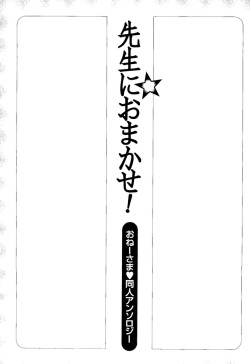 先生に☆おまかせ!
おねーさま♥同人アンソロジー